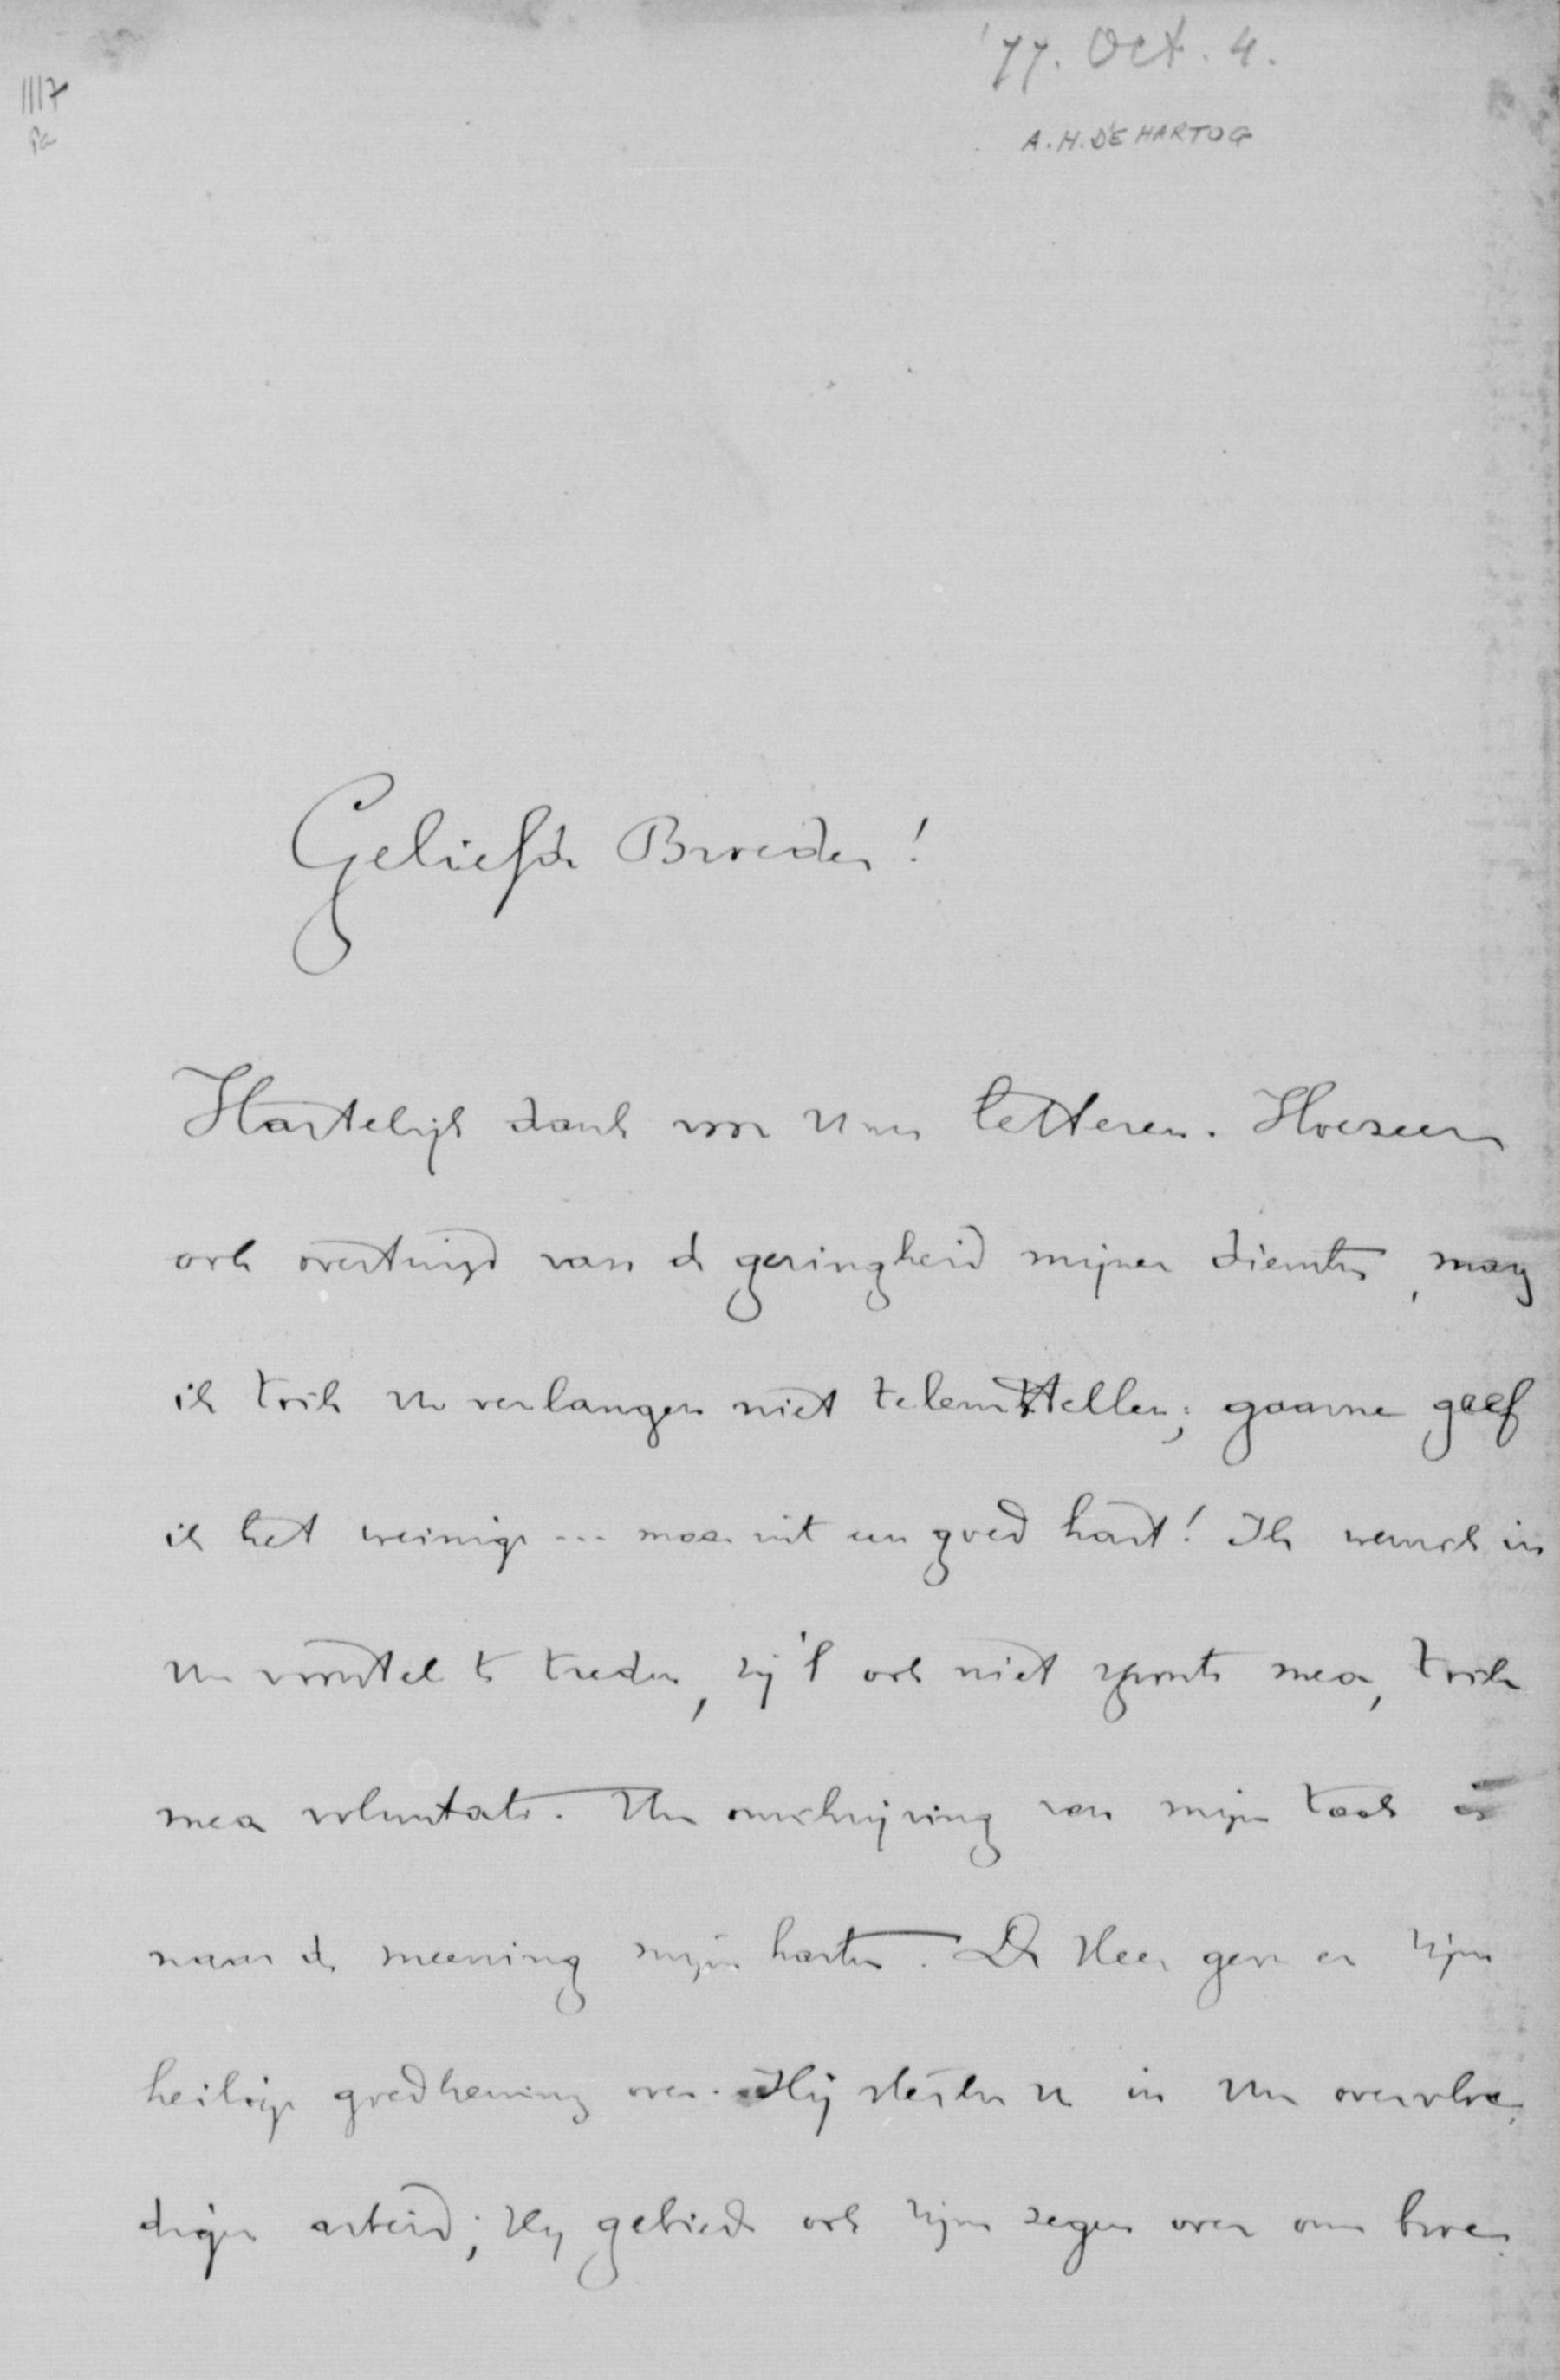 '77. Oct. 4.
1117
A. H. DE HARTOG
Geliefde Broeder!
Hartelijk dank voor Uwe letteren. Hoezeer
ook overtuigd van de geringheid mijner diensten, mag
ik toch Uw verlangen niet teleurstellen; gaarne geef
ik het weinige ... maar uit een goed hart! Ik wensch in
Uw voorstel te treden, zij 't ook niet sponte mea, toch
mea voluntate. Uw omschrijving van mijn taak is
naar de meening mijns harten. De Heer geve er zijne
heilige goedkeuring over. Hij sterke U in Uw overvloe-
digen arbeid; Hij gebiede ook zijne zegen over ons broe-